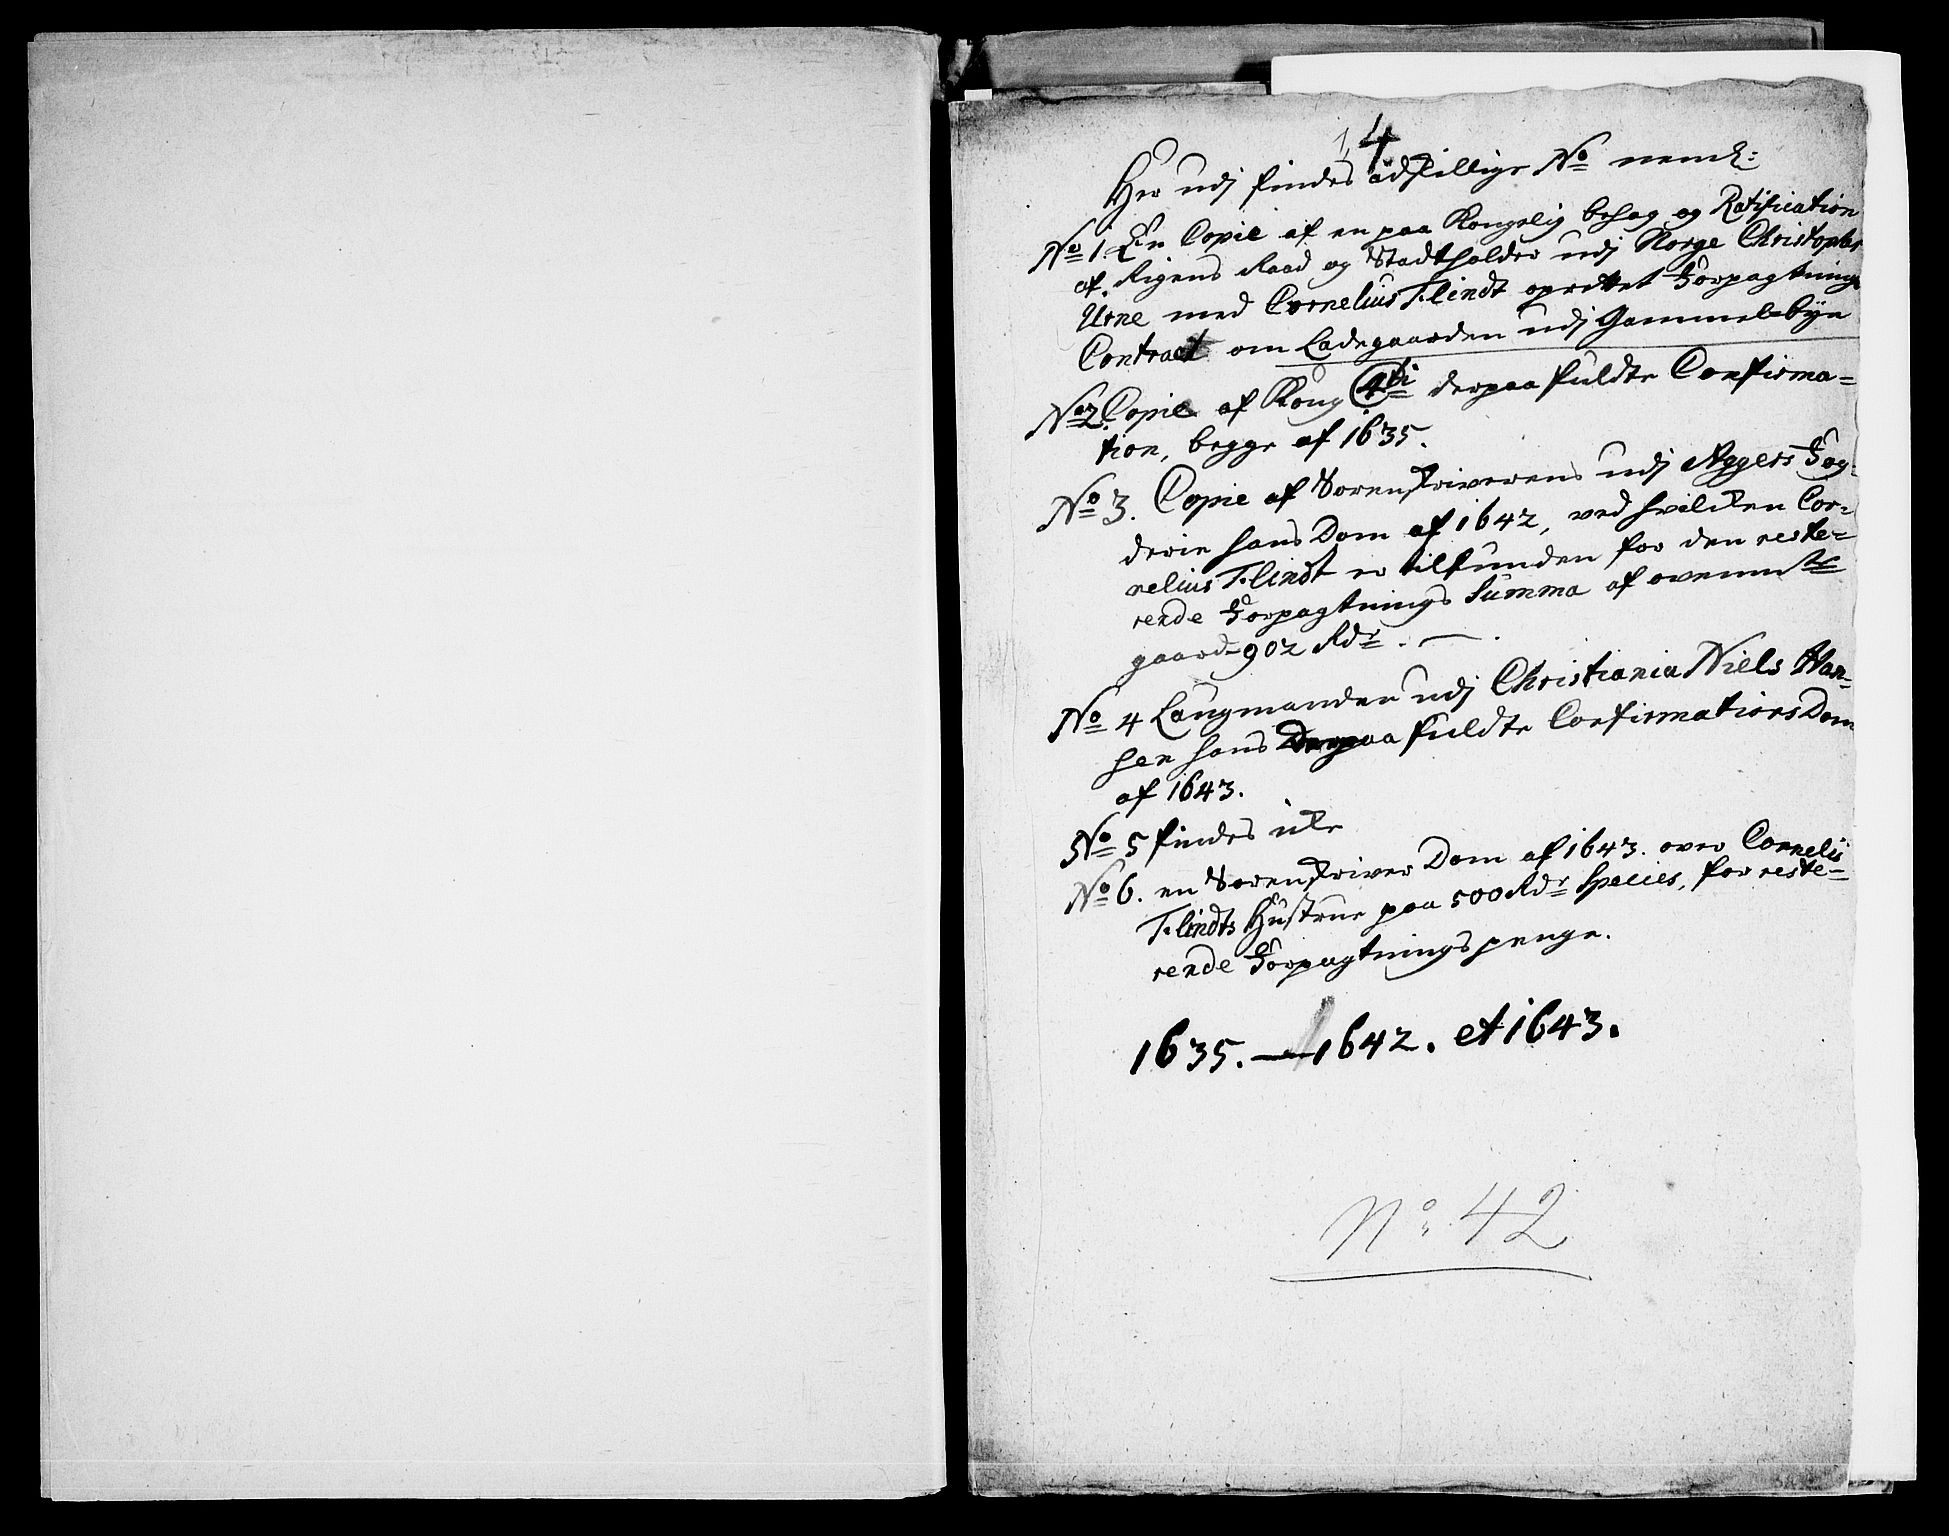 4
Her udj findes adskillige No neml:
No 1. En Copie af en paa Kongelig behag og Ratification
af Rigens Raad og Stadtholder udj Norge Christopher
Urne med Cornelius Flindt oprettet Forpagtnings
Contract om Ladegaarden udj Gammelbÿe
No 2. Copie af Kong C 4di derpaa fuldte Confirma=
tion, begge af 1635.
No 3. Copie af Sorenskriverens udj Aggers Fog=
derie hans Dom af 1642, ved hvilcken Cor=
nelius Flindt er tilfunden for den reste=
rende Forpagtnings Summa af ovenm:te
gaard 902 Rdr. —
No 4 Laugmanden udj Christiania Niels Han=
sen hans Derpaa fuldte Confirmations Dom
af 1643.
No 5 findes icke
No 6. en Sorenskriver Dom af 1643. over Cornelij
Flindts Hustrue paa 500 Rdr Species, for reste=
rende Forpagtnings penge.
1635. — 1642. et 1643.
No. 42